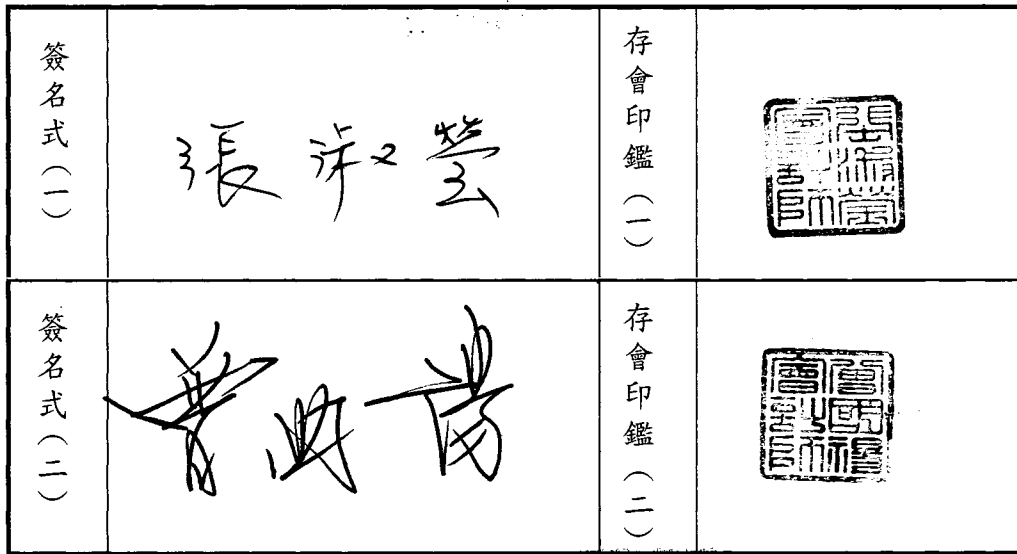 簽名式(一)
張淑瑩
存會印鑑(一)
張淑瑩會計師
簽名式(二)
存會印鑑(二)